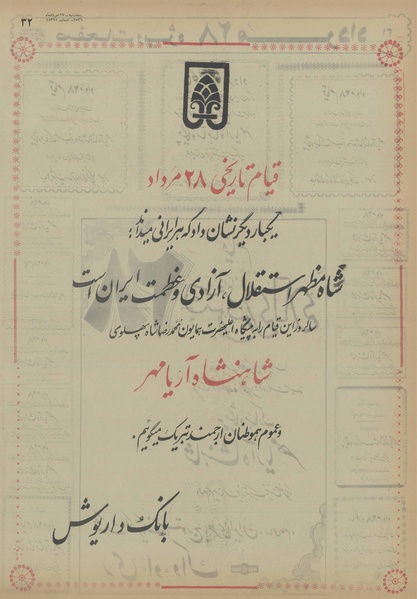 ۳۲
قیام تاریخی ۲۸ مرداد
یکبار دیگر نشان داد که هر ایرانی میداند:
شاه مظهر استقلال، آزادی و عظمت ایران است
سالروز این قیام را به پیشگاه اعلیحضرت همایون محمدرضا شاه پهلوی
شاهنشاه آریامهر
و عموم هموطنان ارجمند تبریک میگوئیم.
بانک داریوش